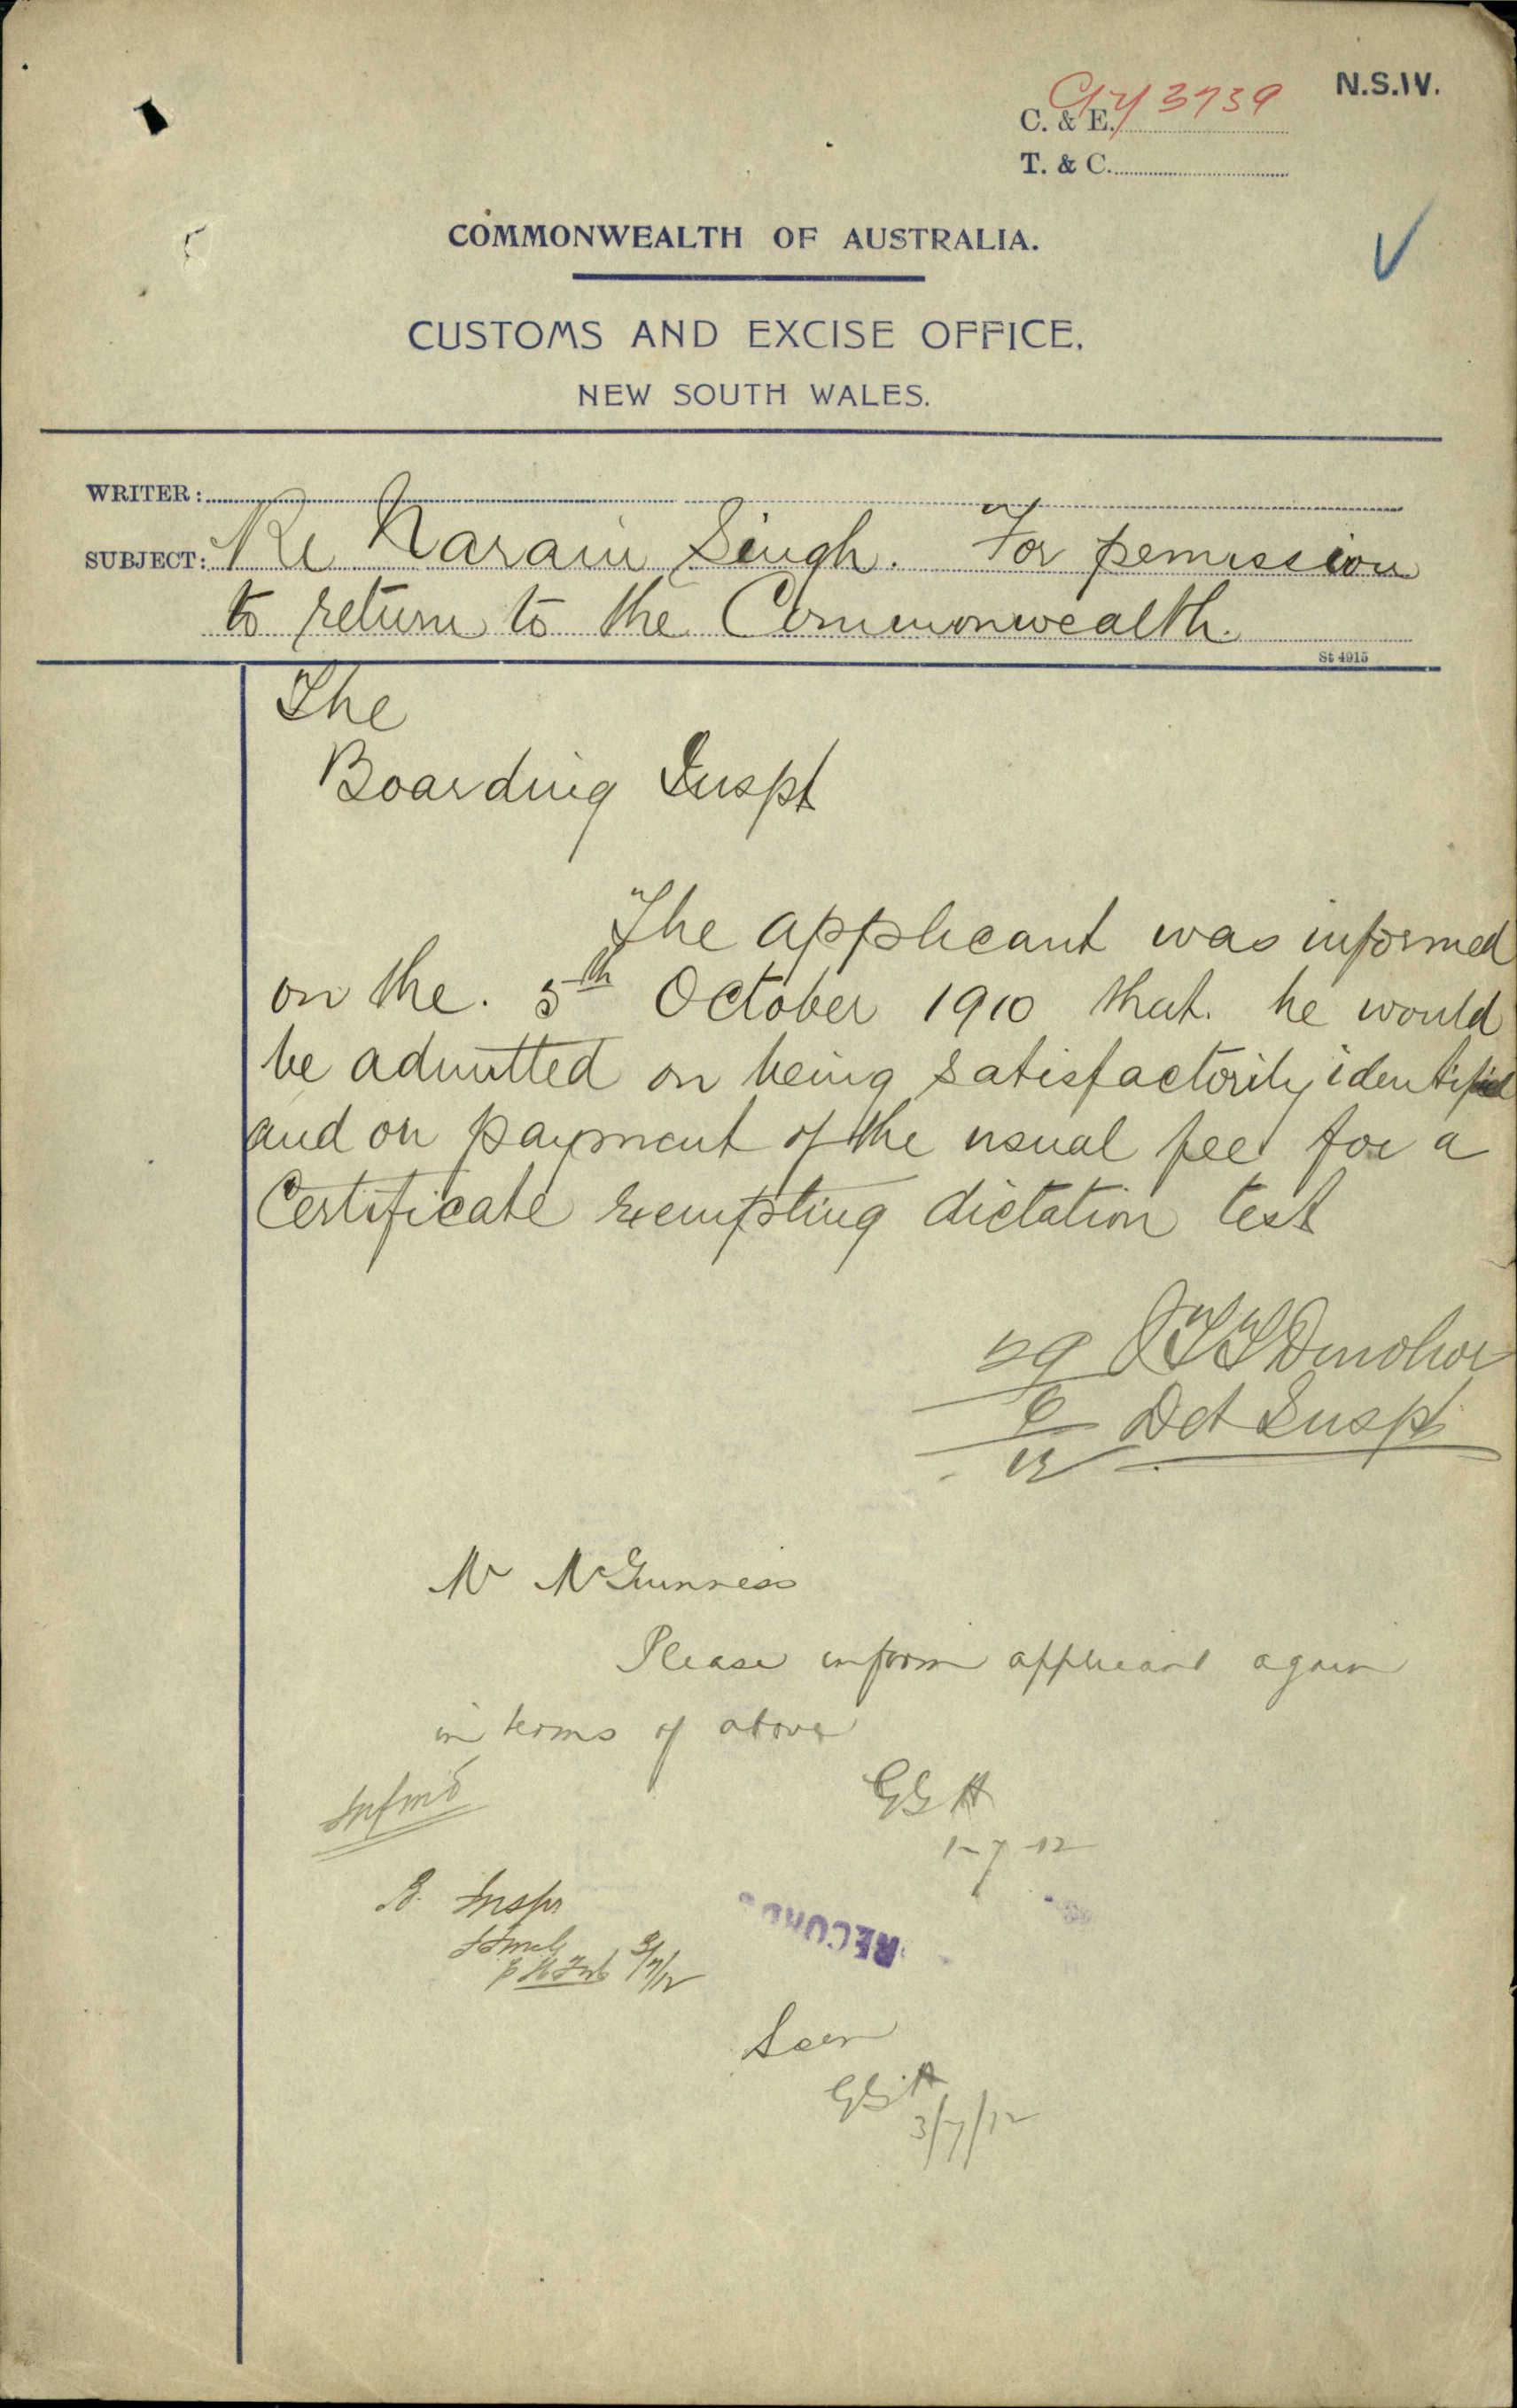 N.S.W.
C. & E. G/y 3739
T. & C.
COMMONWEALTH OF AUSTRALIA.
CUSTOMS AND EXCISE OFFICE,
NEW SOUTH WALES.
WRITER:
SUBJECT: Re Narain Singh. For pemission
to return to the Commonwealth.
St 4915
The
Boarding Inspt
The applicant was informed
on the. 5th October 1910 that. he would
be admitted on being satisfactorily identified
and on payment of the usual fee for a
Certificate exempting dictation test
29 J T T Donohoe
6 Det Inspt
12
Mr McGuinness
Please inform applicant again
in terms of above
GGH
1-7-12
Infmd
B. Inspr
3/7/12
RECORDS
Seen
GGH
3/7/12